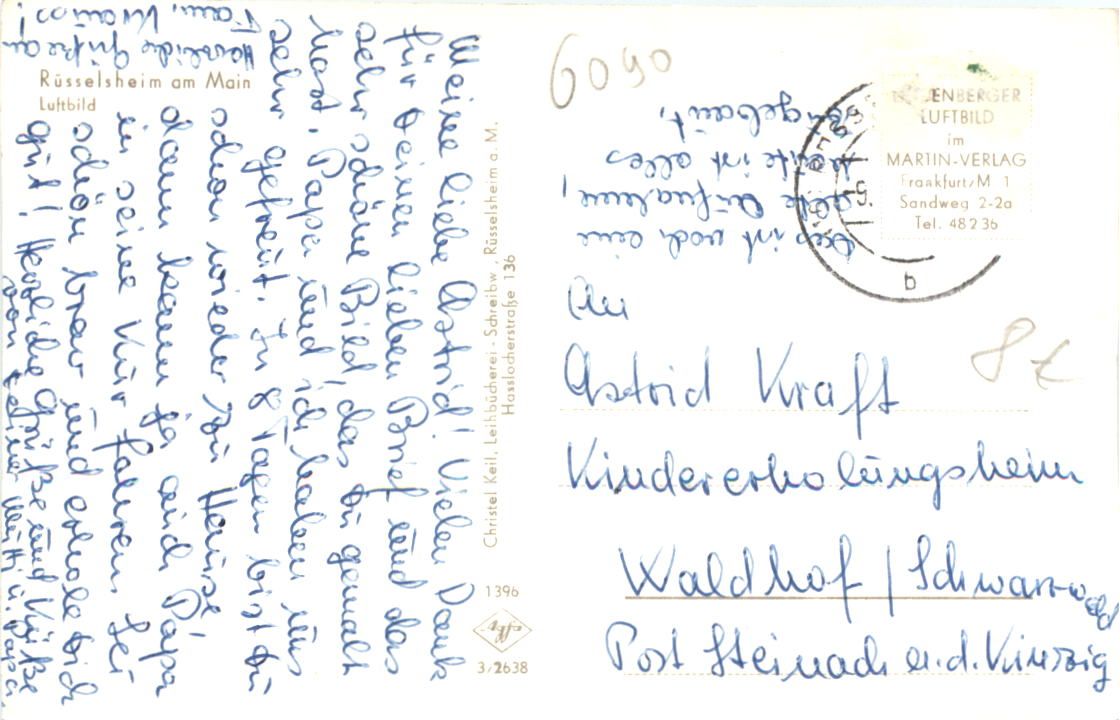 Rüsselsheim am Main
Luftbild
Meine liebe Astrid! Vielen Dank
für Deinen lieben Brief und das
sehr schöne Bild, das Du gemalt
hast. Papa und ich haben uns
sehr gefreut. In 8 Tagen bist Du
schon wieder zu Hause,
dann kann ja auch Papa
in seine Kur fahren. Sei
schön brav und erhole Dich
gut! Herzliche Grüße und Küße
von Deiner Mutti u. Papa
Herzliche Grüße an
Fam. Kraus!
Christel Keil, Leihbücherei - Schreibw., Rüsselsheim a. M.
Hasslocherstraße 136
1396
3/2638
6090
Das ist noch eine
alte Aufnahme,
heute ist alles
angebaut.
ENBERGER
LUFTBILD
im
MARTIN-VERLAG
Frankfurt/M 1
Sandweg 2-2a
Tel. 48236
b
An
Astrid Kraft
Kindererholungsheim
Waldhof / Schwarzwald
Post Steinach a. d. Kinzig